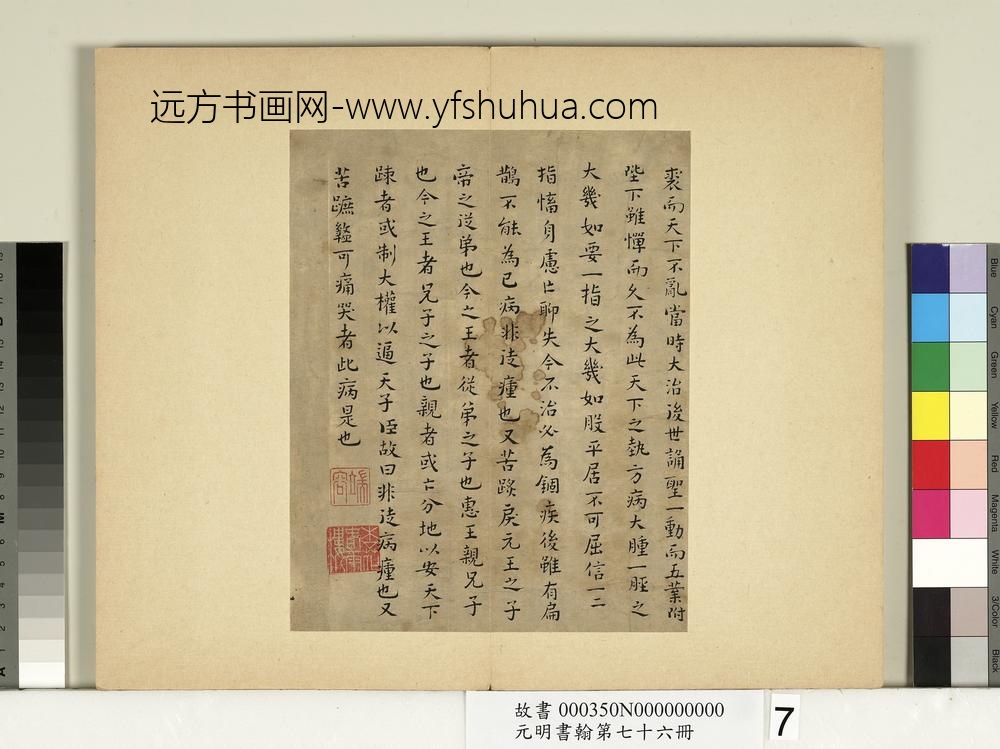 远方书画网-www.yfshuhua.com
裘而天下不亂當時大治後世誦聖一動而五業附
陛下雖憚而久不為此天下之勢方病大腫一脛之
大幾如要一指之大幾如股平居不可屈信一二
指慉身慮亡聊失今不治必為錮疾後雖有扁
鵲不能為已病非徒瘇也又苦䠫戾元王之子
帝之從弟也今之王者從弟之子也惠王親兄子
也今之王者兄子之子也親者或亡分地以安天下
踈者或制大權以逼天子臣故曰非徒病瘇也又
苦蹠盭可痛哭者此病是也
端容
故書 000350N000000000
元明書翰第七十六冊
7
Blue
Cyan
Green
Yellow
Red
Magenta
White
3/Color
Black